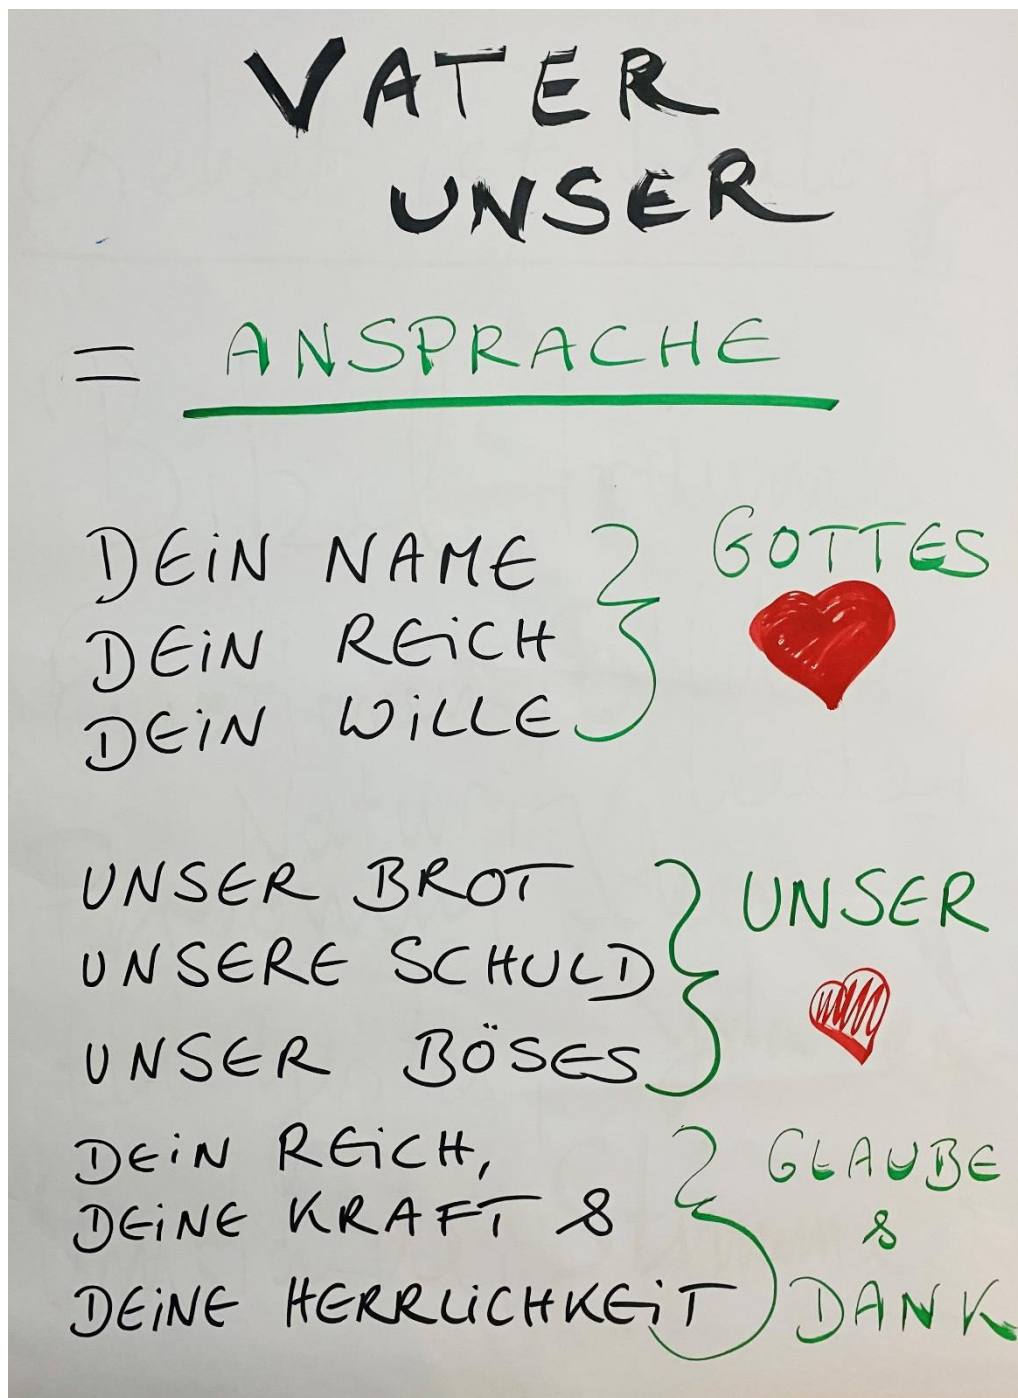 VATER
UNSER
= ANSPRACHE
DEIN NAME
DEIN REICH
DEIN WILLE
GOTTES
UNSER BROT
UNSERE SCHULD
UNSER BÖSES
UNSER
DEIN REICH,
DEINE KRAFT &
DEINE HERRLICHKEIT
GLAUBE
&
DANK